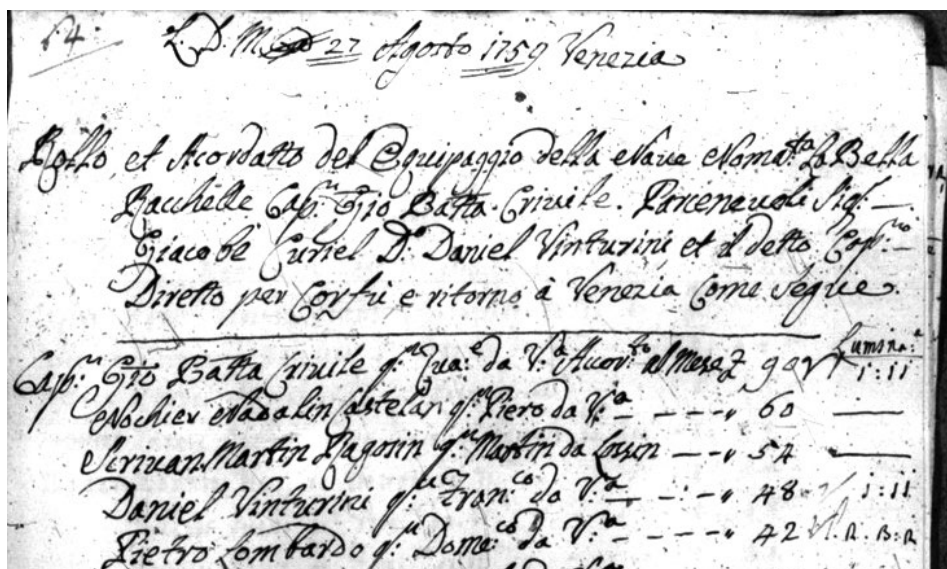 64.
L. D. M. 27 Agosto 1759 Venezia
Rollo, et Acordatto del Equipaggio della Nave Noma:ta La Bella
Racchelle Cap:n Gio Batta Crivile. Parcenevoli Sig:
Giacobe Curiel D: Daniel Vinturini, et il detto Cap:no
Diretto per Corfù e ritorno à Venezia Come Segue.
Lumina:
Cap:n Gio Batta Crivile q:m da V:a Acor:to al Mese 1:11
Nochier Nadalin Castelan q:m Piero da V:a - - - " 60
Scrivan Martin Ragosin q:m Martin da - - " 54
Daniel Vinturini q:m Fran:co da V:a - - - " 48 1:11
Pietro Lombardo q:m Dome:co da V:a - - - - 42